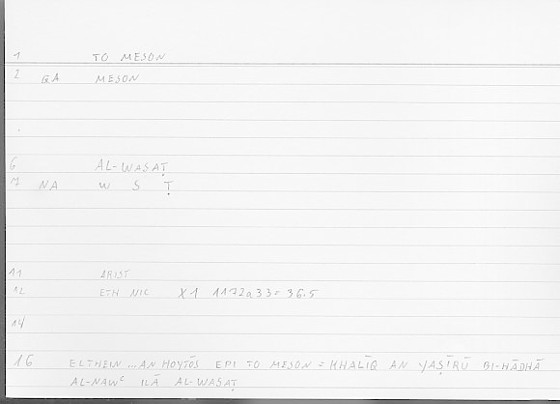 1 TO MESON
2 GA MESON
6 AL-WASAṬ
7 NA W S Ṭ
11 ARIST
12 ETH NIC X1 1172a33 = 36.5
14
16 ELTHEIN ... AN HOYTŌS EPI TO MESON = KHALĪQ AN YAṢĪRŪ BI-HĀDHĀ
AL-NAWᶜ ILĀ AL-WASAṬ